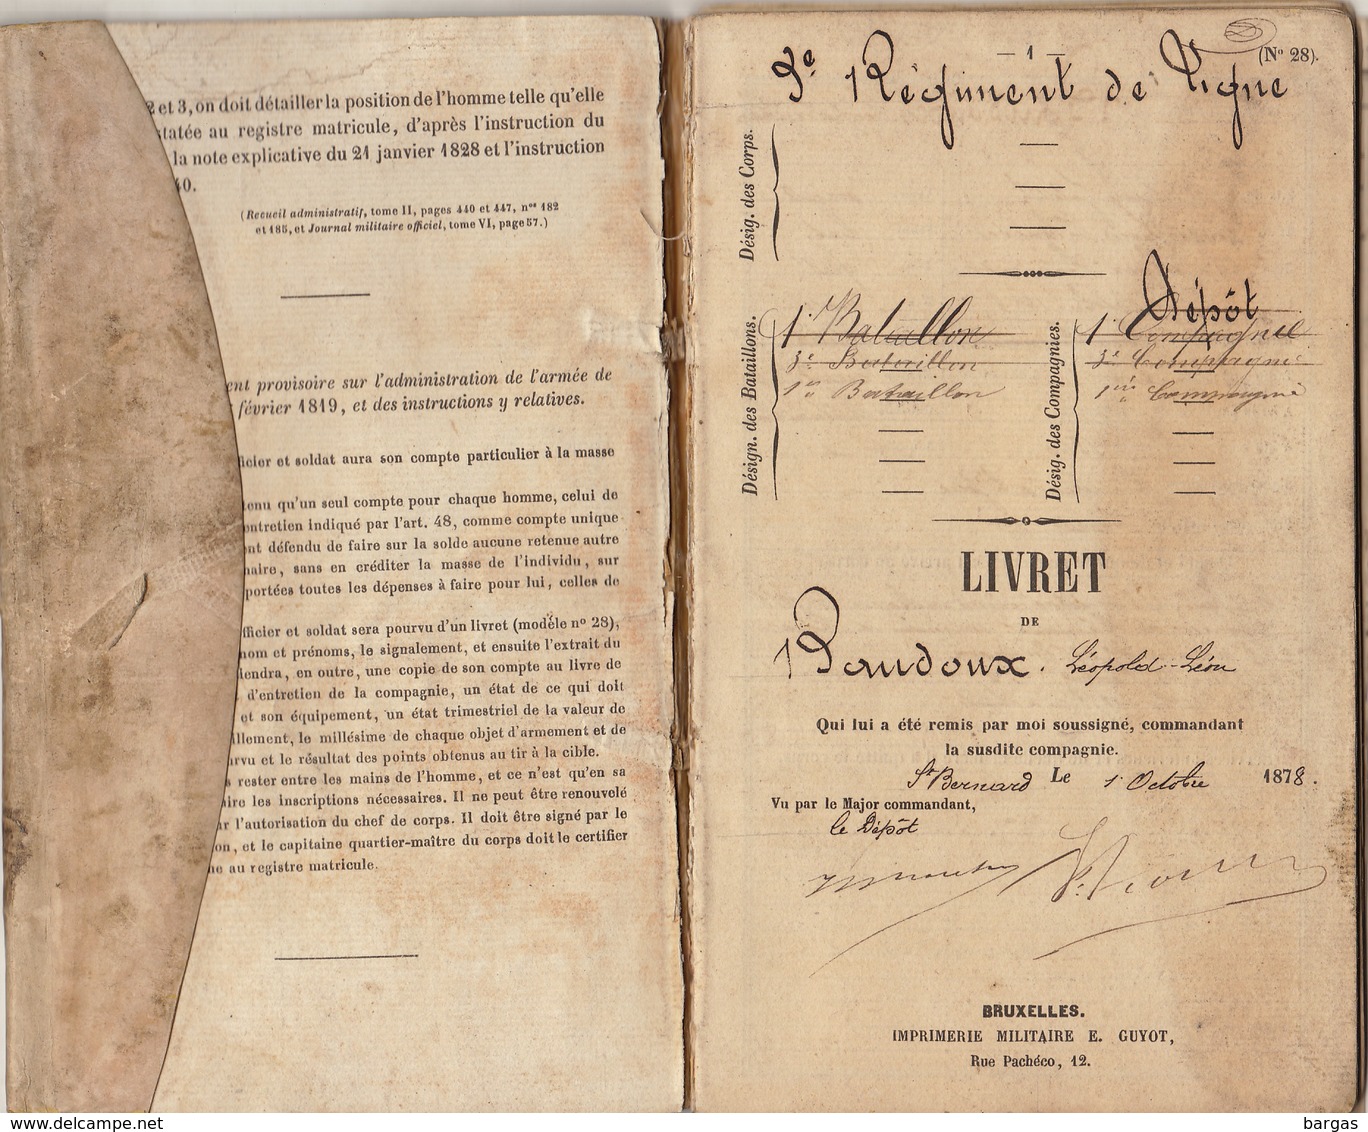 2 et 3, on doit détailler la position de l'homme telle qu'elle
statée au registre matricule, d'après l'instruction du
la note explicative du 21 janvier 1828 et l'instruction
40.
(Recueil administratif, tome II, pages 440 et 447, nos 182
et 185, et Journal militaire officiel, tome VI, page 57.)
ent provisoire sur l'administration de l'armée de
février 1819, et des instructions y relatives.
ficier et soldat aura son compte particulier à la masse
tenu qu'un seul compte pour chaque homme, celui de
entretien indiqué par l'art. 48, comme compte unique
nt défendu de faire sur la solde aucune retenue autre
naire, sans en créditer la masse de l'individu, sur
portées toutes les dépenses à faire pour lui, celles de
fficier et soldat sera pourvu d'un livret (modéle no 28),
nom et prénoms, le signalement, et ensuite l'extrait du
iendra, en outre, une copie de son compte au livre de
d'entretien de la compagnie, un état de ce qui doit
et son équipement, un état trimestriel de la valeur de
illement, le millésime de chaque objet d'armement et de
urvu et le résultat des points obtenus au tir à la cible.
s rester entre les mains de l'homme, et ce n'est qu'en sa
ire les inscriptions nécessaires. Il ne peut être renouvelé
r l'autorisation du chef de corps. Il doit être signé par le
on, et le capitaine quartier-maître du corps doit le certifier
ne au registre matricule.
— 1 —
(No 28).
3e Régiment de Ligne
Désig. des Corps.
Dépôt
Désign. des Bataillons.
1. Bataillon
3e Bataillon
1er Bataillon
Désig. des Compagnies.
1. Compagnie
3e Compagnie
1ère Compagnie
LIVRET
DE
Roudoux. Léopold-Léon
Qui lui a été remis par moi soussigné, commandant
la susdite compagnie.
St Bernard Le 1r Octobre 1878.
Vu par le Major commandant,
le Dépôt
BRUXELLES.
IMPRIMERIE MILITAIRE E. GUYOT,
Rue Pachéco, 12.
www.delcampe.net
bargas